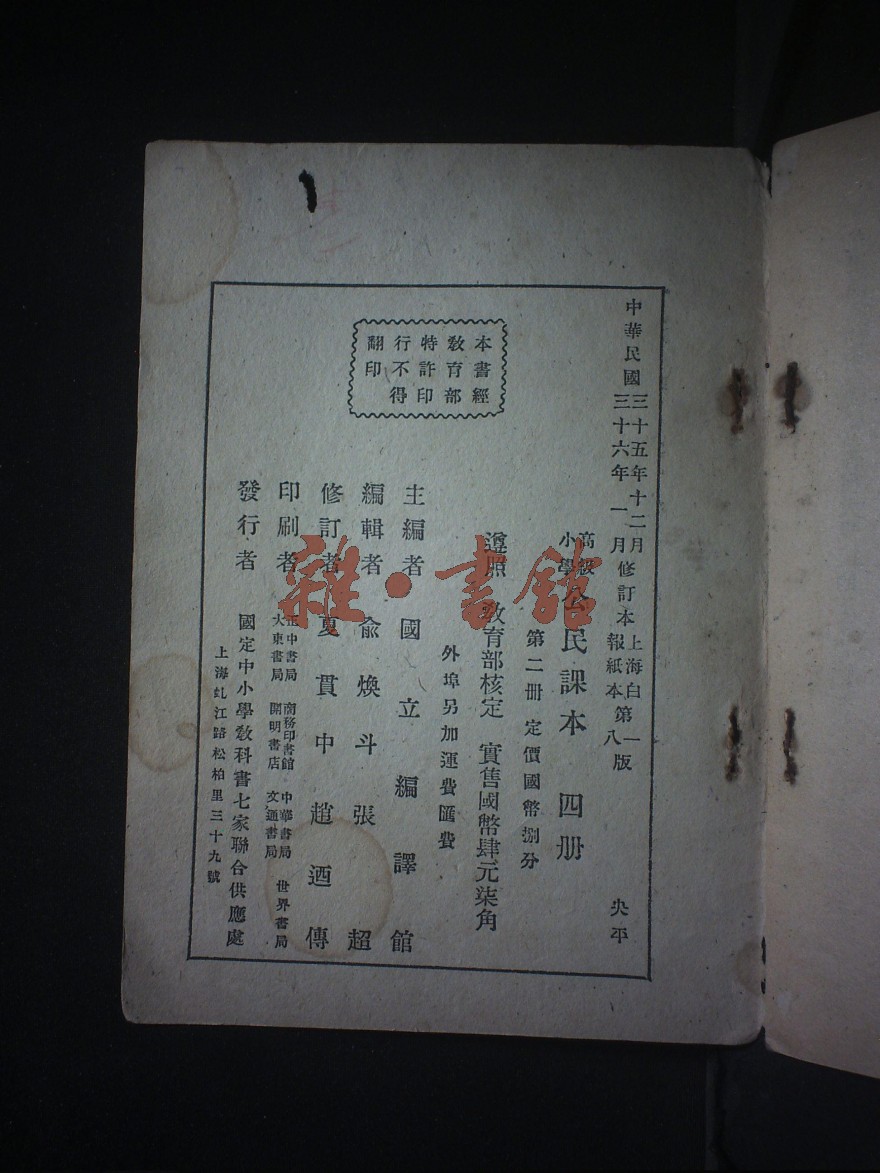 中華民國三十五年十二月修訂本上海白第一版
三十六年一月 報紙本 八
央平
高級
小學公民課本 四册
第二册 定價國幣捌分
遵照 教育部核定 實售國幣肆元柒角
外埠另加運費匯費
本書經
教育部
特許印
行不得
翻印
主編者 國立編譯館
編輯者 俞煥斗 張超
修訂者 夏貫中 趙迺傳
印刷者 正中書局 商務印書館 中華書局 世界書局
大東書局 開明書店 文通書局
發行者 國定中小學教科書七家聯合供應處
上海虬江路松柏里三十九號
雜·書館